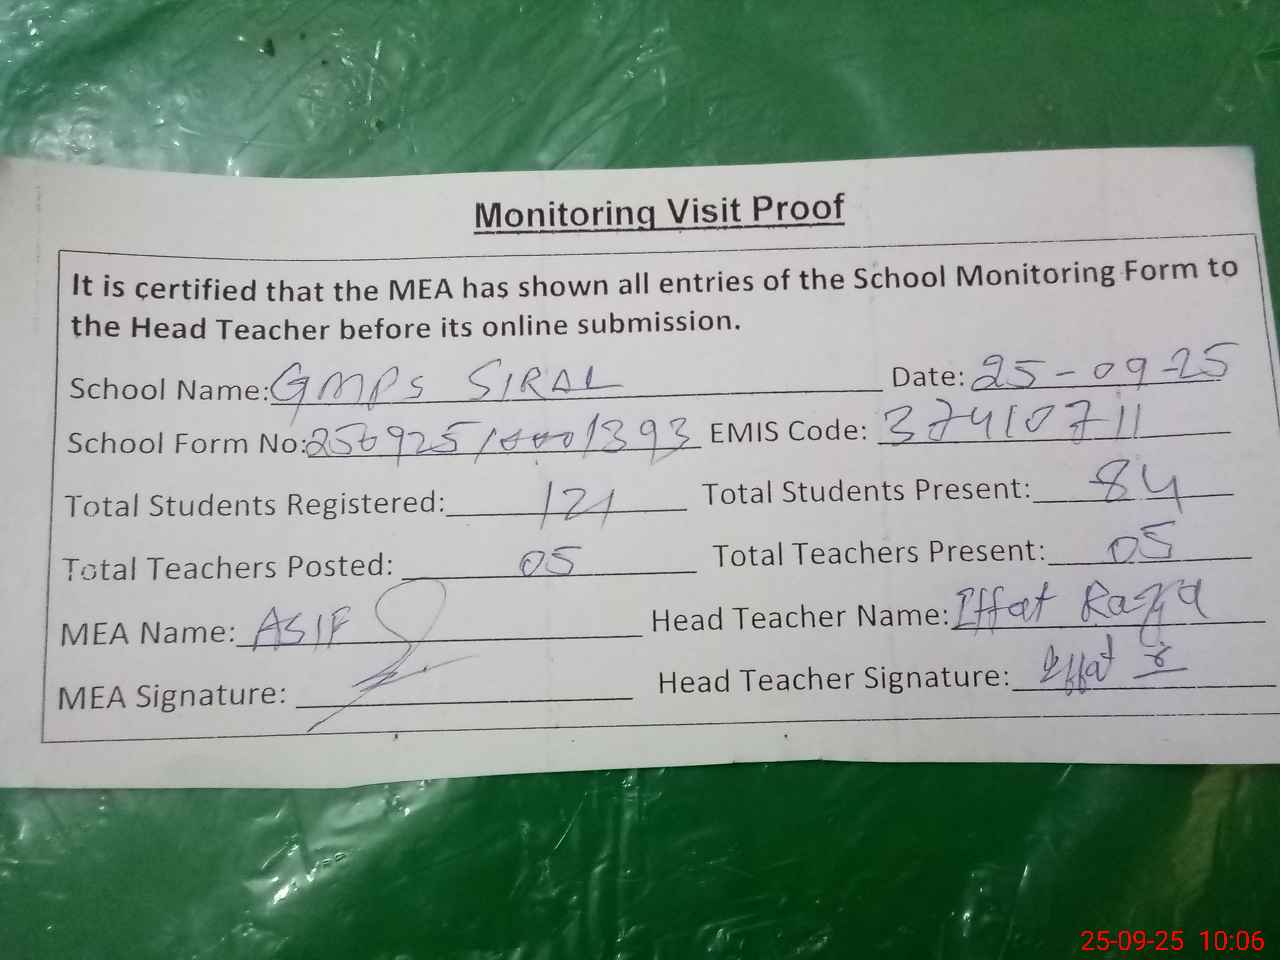 Monitoring Visit Proof
It is certified that the MEA has shown all entries of the School Monitoring Form to
the Head Teacher before its online submission.
School Name: GMPS SIRAL Date: 25-09-25
School Form No: EMIS Code: 37410711
Total Students Registered: 121 Total Students Present: 84
Total Teachers Posted: 05 Total Teachers Present: 05
MEA Name: ASIF Head Teacher Name: Iffat Razzq
MEA Signature: Head Teacher Signature: Iffat
25-09-25 10:06